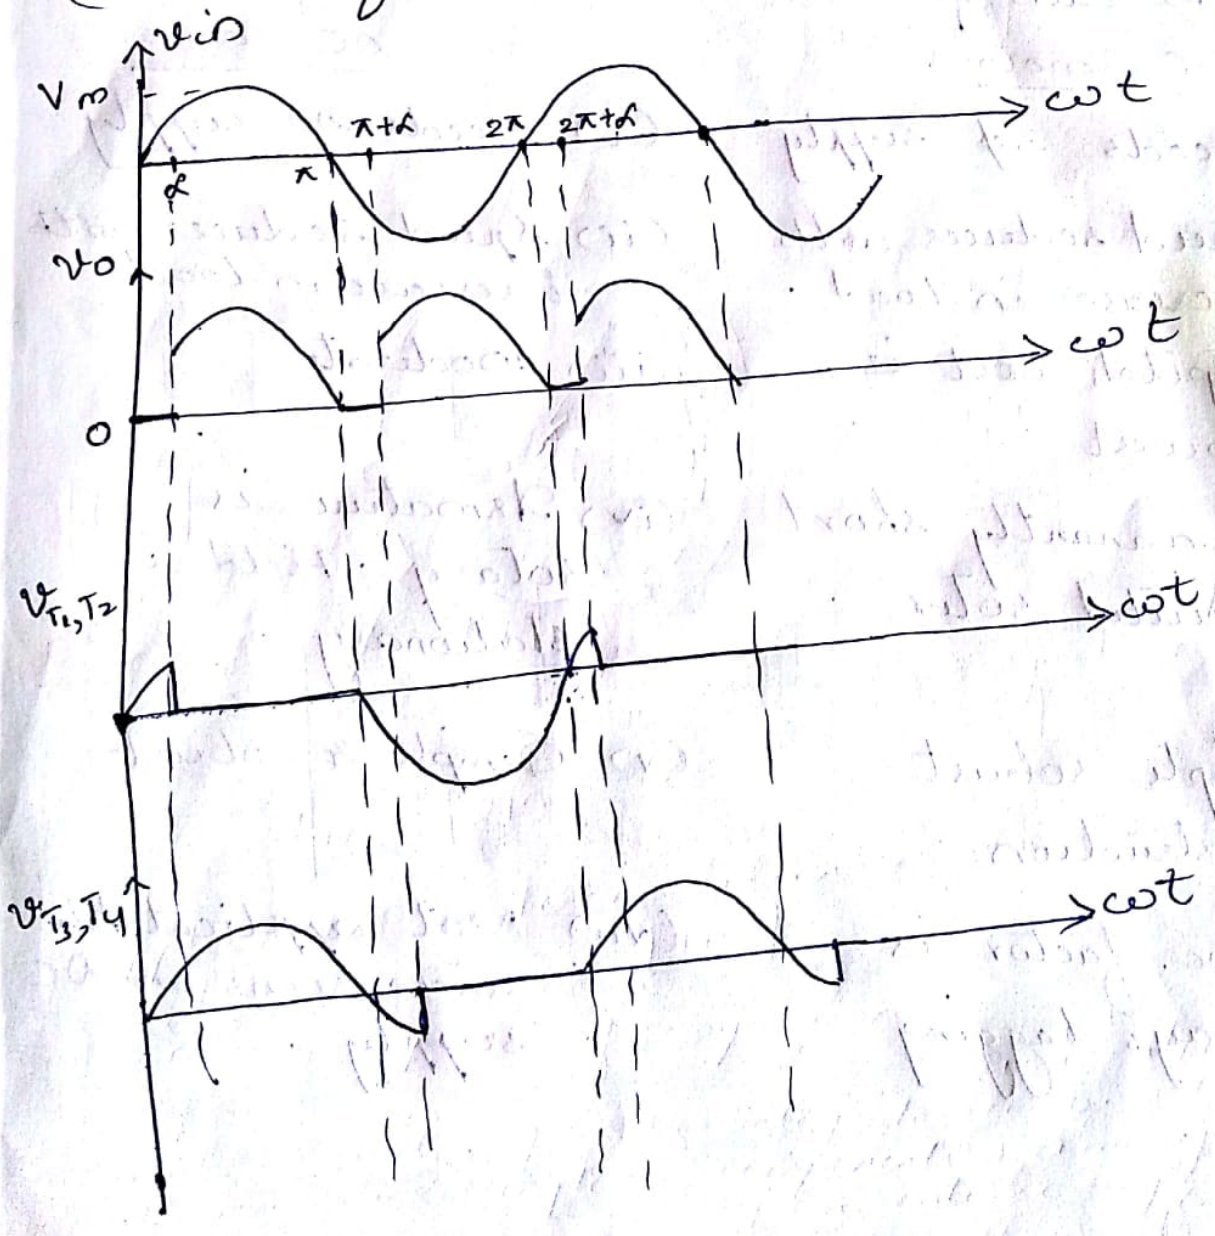 vin
Vm
ωt
π+α
2π
2π+α
α
π
vo
ωt
0
vT1,T2
ωt
vT3,T4
ωt